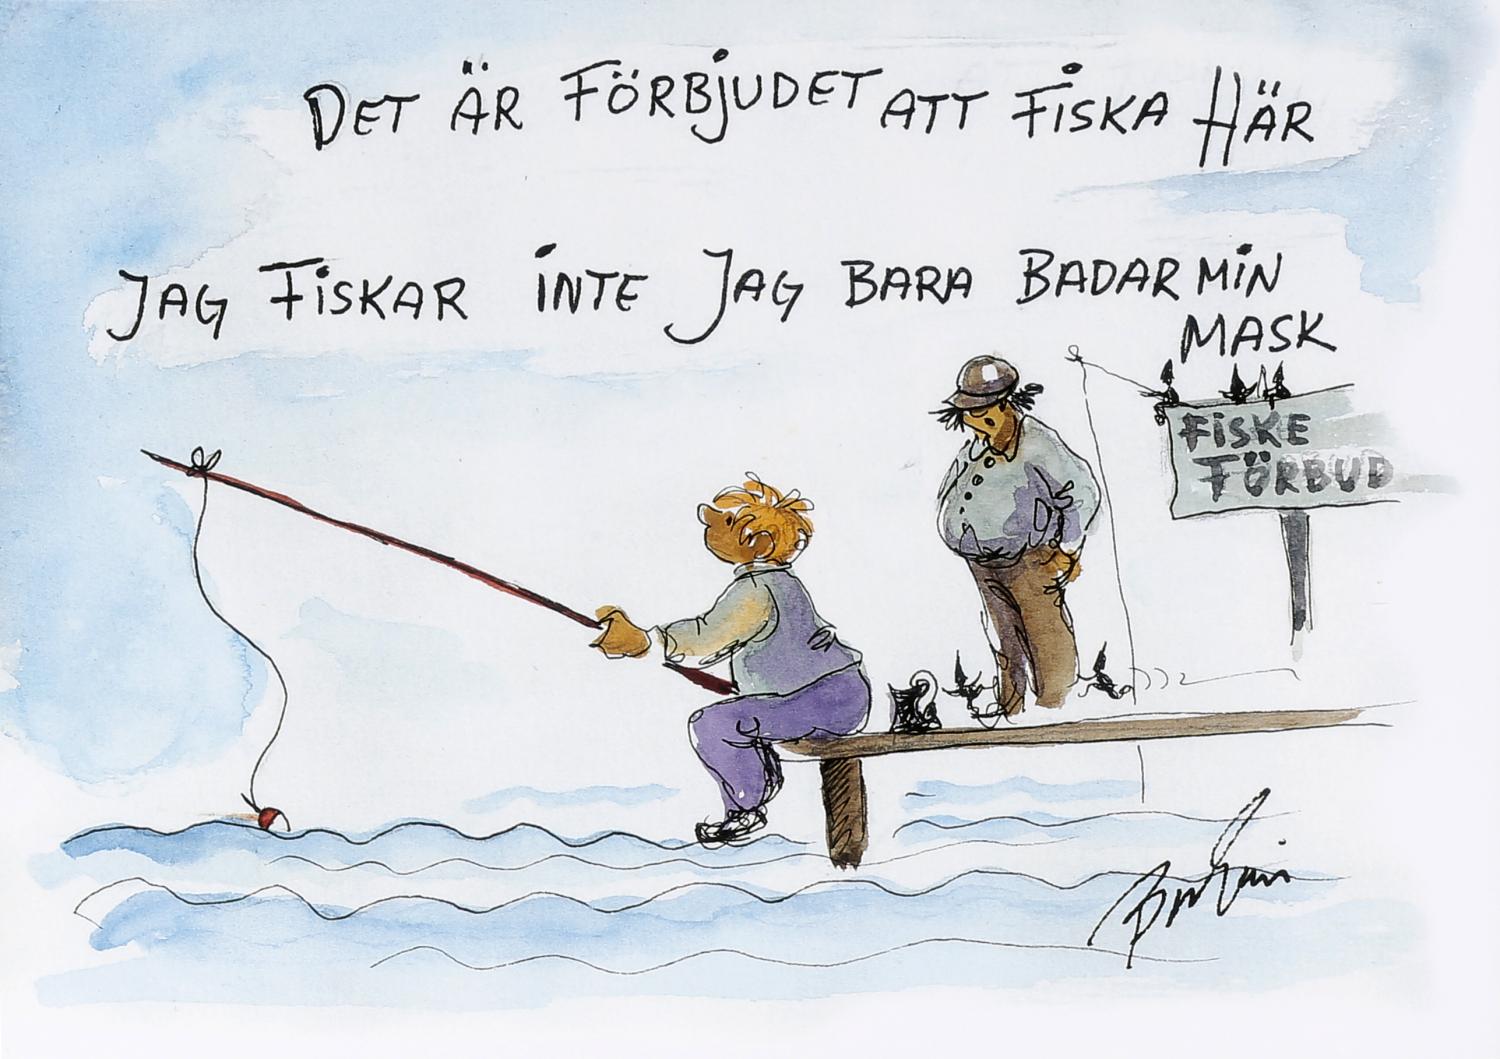 DET ÄR FÖRBJUDET ATT FISKA HÄR
JAG FISKAR INTE JAG BARA BADAR MIN
MASK
FISKE
FÖRBUD